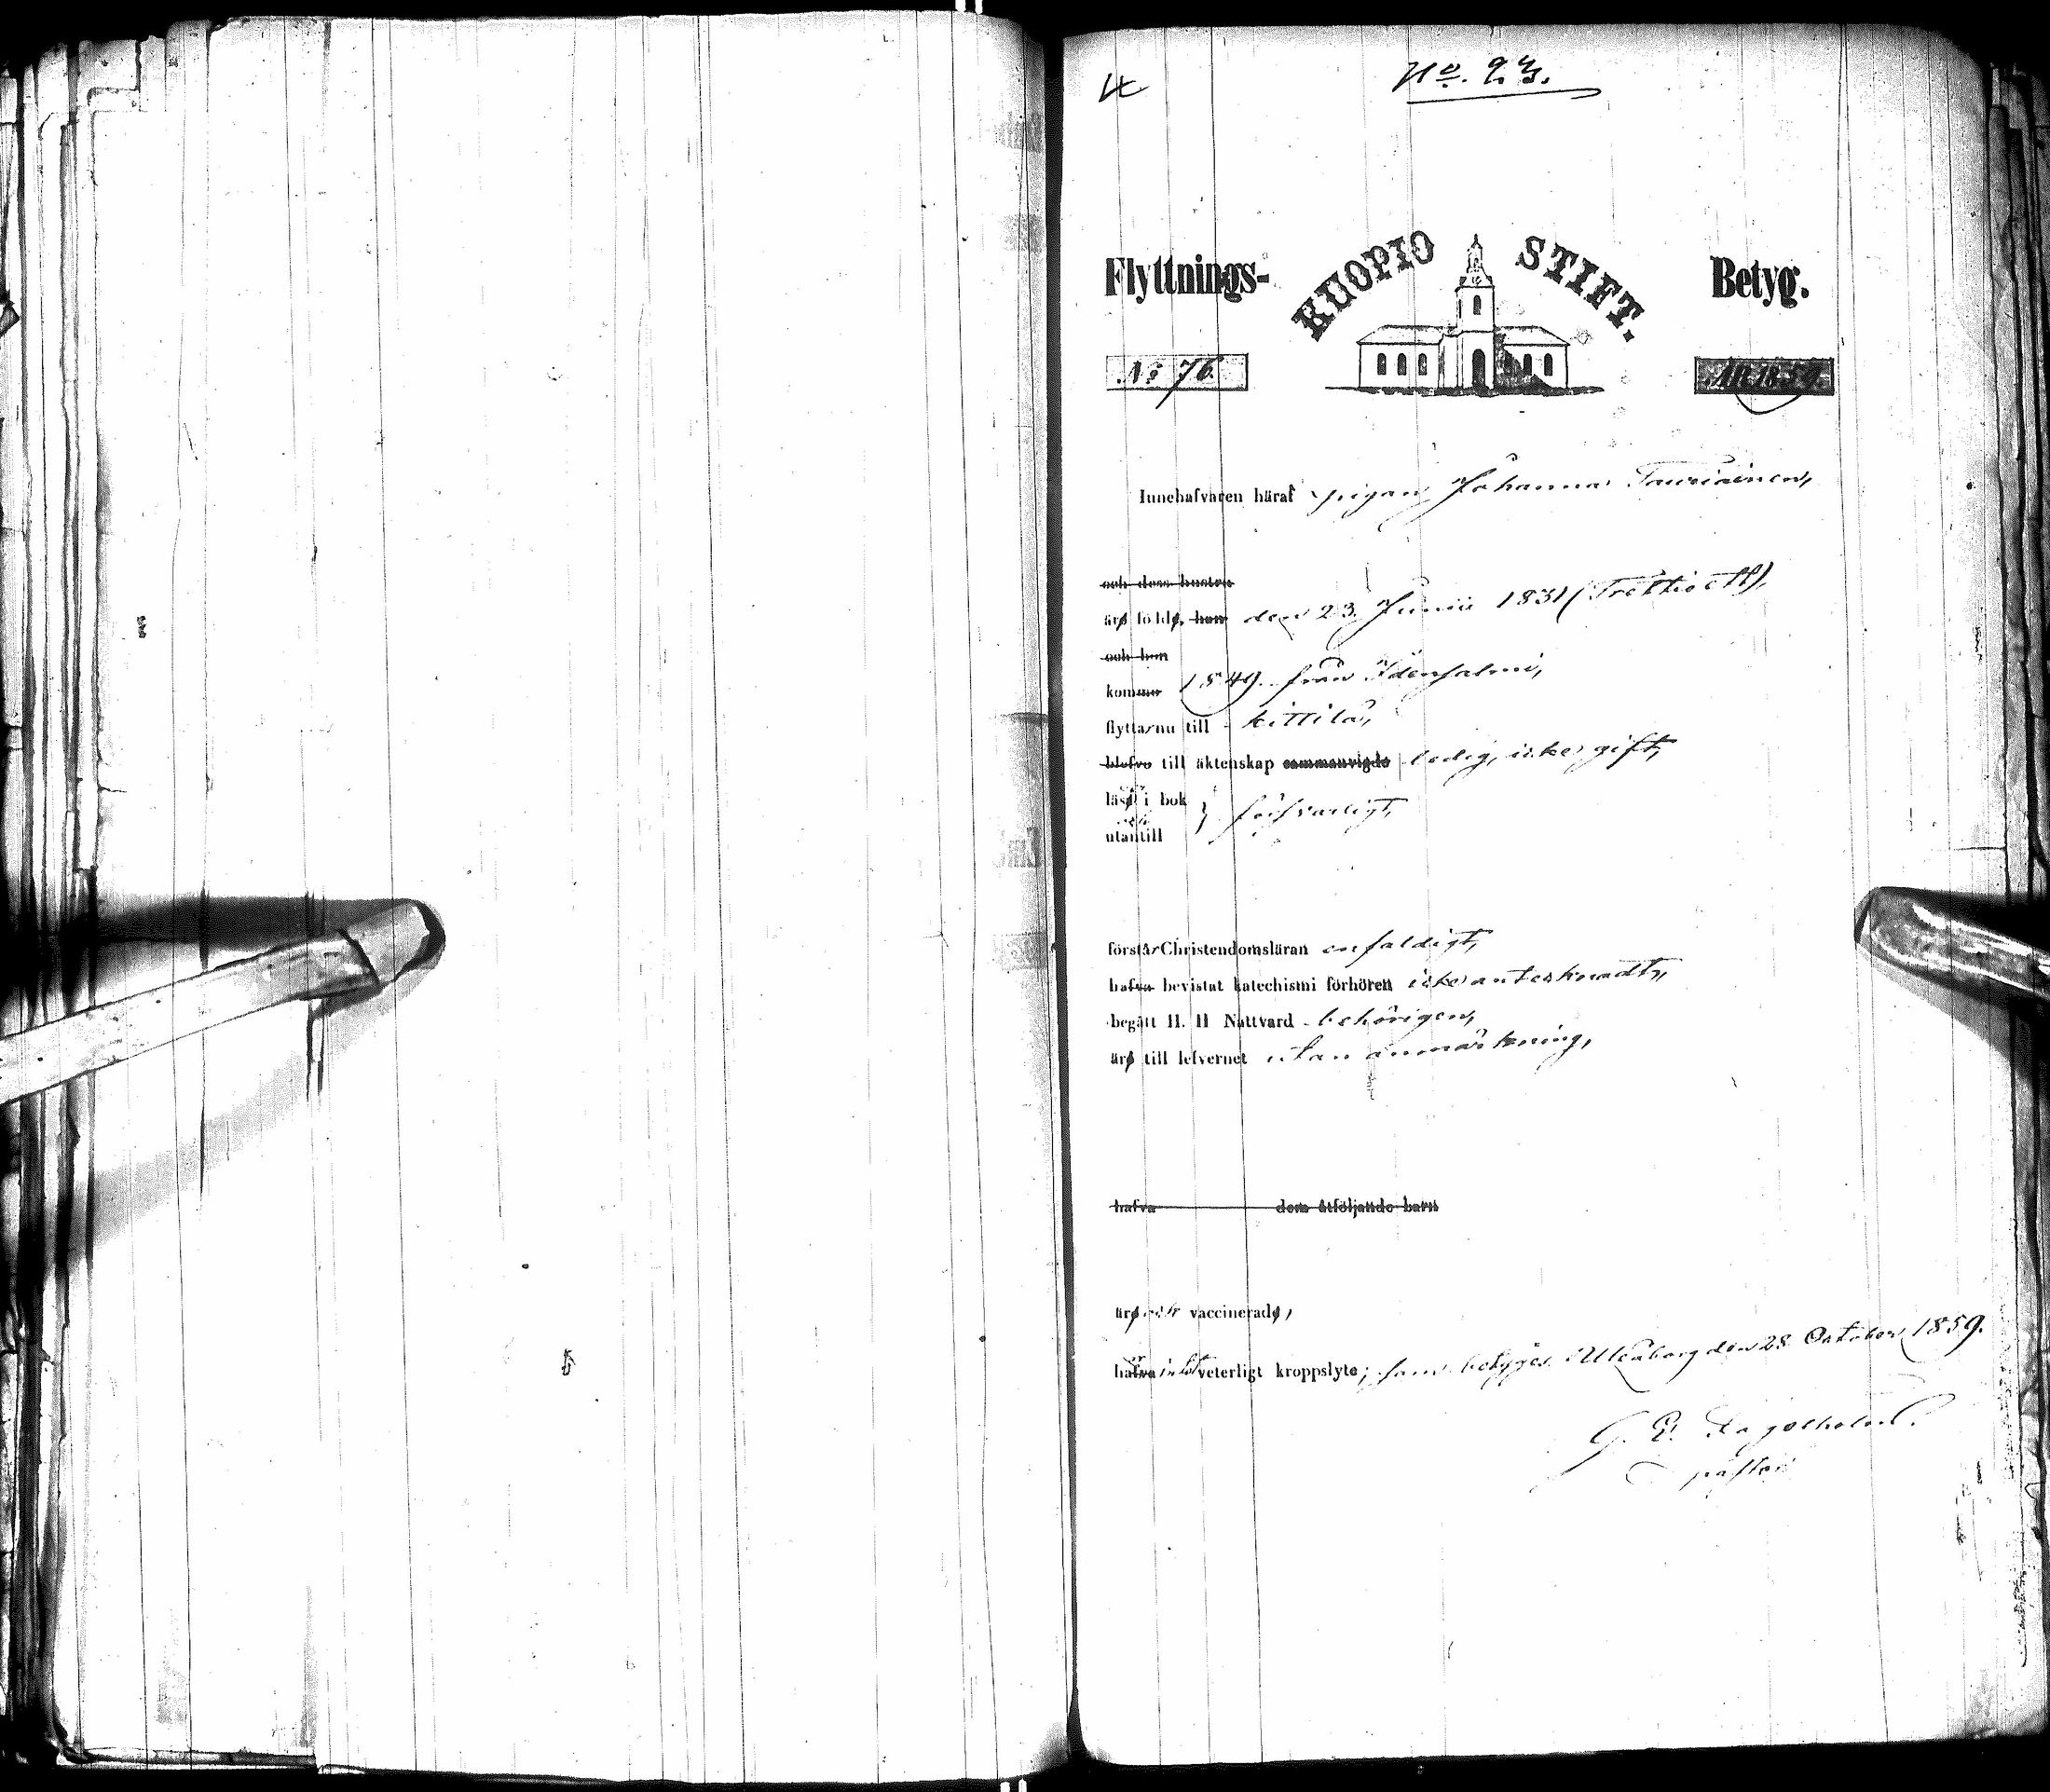 No. 23.
Flyttnings- KUOPIO STIFT. Betyg.
No 76. ÅR 1859.
Innehafvaren häraf pigan Johanna Tauriainen,
och dess hustru
äro födde, han den 23 Junii 1831 (Trettioett),
och hon
kommo 1849 från Idensalmi,
flyttar nu till Kittilä,
blefvo till äktenskap sammanvigde ledig, icke gift,
läser i bok
och } försvarligt,
utantill
förstår Christendomsläran enfaldigt,
hafva bevistat katechismi förhören icke antecknadt,
begått H. H Nattvard behörigen,
äro till lefvernet utan anmärkning,
hafva dem åtföljande barn
äro och vaccinerade,
hafva intet veterligt kroppslyte; som betygas. Uleåborg den 28 October 1859.
G. E.
pastor